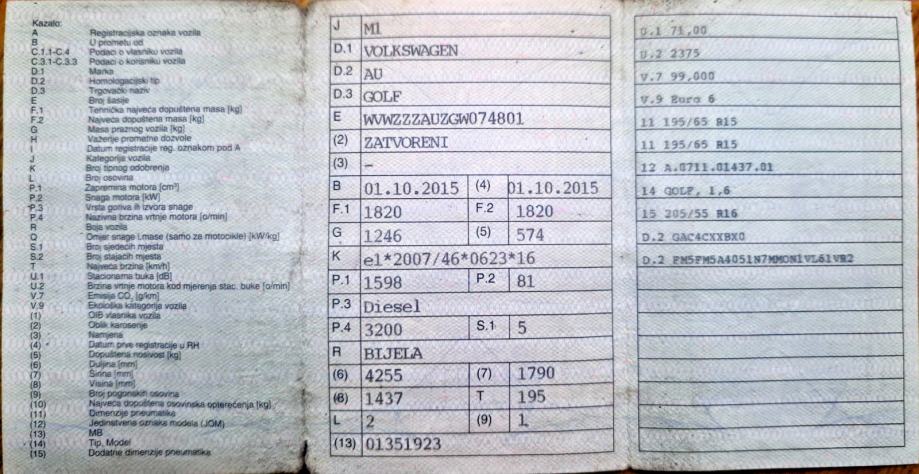 Kazalo:
A Registracijska oznaka vozila
B U prometu od
C.1.1-C.4 Podaci o vlasniku vozila
C.3.1-C.3.3 Podaci o korisniku vozila
D.1 Marka
D.2 Homologacijski tip
D.3 Trgovački naziv
E Broj šasije
F.1 Tehnička najveća dopuštena masa [kg]
F.2 Najveća dopuštena masa [kg]
G Masa praznog vozila [kg]
H Važenje prometne dozvole
I Datum registracije reg. oznakom pod A
J Kategorija vozila
K Broj tipnog odobrenja
L Broj osovina
P.1 Zapremina motora [cm³]
P.2 Snaga motora [kW]
P.3 Vrsta goriva ili izvora snage
P.4 Nazivna brzina vrtnje motora [o/min]
R Boja vozila
Q Omjer snage i mase (samo za motocikle) [kW/kg]
S.1 Broj sjedećih mjesta
S.2 Broj stajaćih mjesta
T Najveća brzina [km/h]
U.1 Stacionarna buka [dB]
U.2 Brzina vrtnje motora kod mjerenja stac. buke [o/min]
V.7 Emisija CO₂ [g/km]
V.9 Ekološka kategorija vozila
(1) OIB vlasnika vozila
(2) Oblik karoserije
(3) Namjena
(4) Datum prve registracije u RH
(5) Dopuštena nosivost [kg]
(6) Duljina [mm]
(7) Širina [mm]
(8) Visina [mm]
(9) Broj pogonskih osovina
(10) Najveća dopuštena osovinska opterećenja [kg]
(11) Dimenzije pneumatika
(12) Jedinstvena oznaka modela (JOM)
(13) MB
(14) Tip, Model
(15) Dodatne dimenzije pneumatika
J M1
D.1 VOLKSWAGEN
D.2 AU
D.3 GOLF
E WVWZZZAUZGW074801
(2) ZATVORENI
(3) -
B 01.10.2015 (4) 01.10.2015
F.1 1820 F.2 1820
G 1246 (5) 574
K e1*2007/46*0623*16
P.1 1598 P.2 81
P.3 Diesel
P.4 3200 S.1 5
R BIJELA
(6) 4255 (7) 1790
(8) 1437 T 195
L 2 (9) 1
(13) 01351923
U.1 71,00
U.2 2375
V.7 99,000
V.9 Euro 6
11 195/65 R15
11 195/65 R15
12 A.0711.01437.01
14 GOLF, 1,6
15 205/55 R16
D.2 GAC4CXXBX0
D.2 FM5FM5A4051N7MMON1VL61VR2